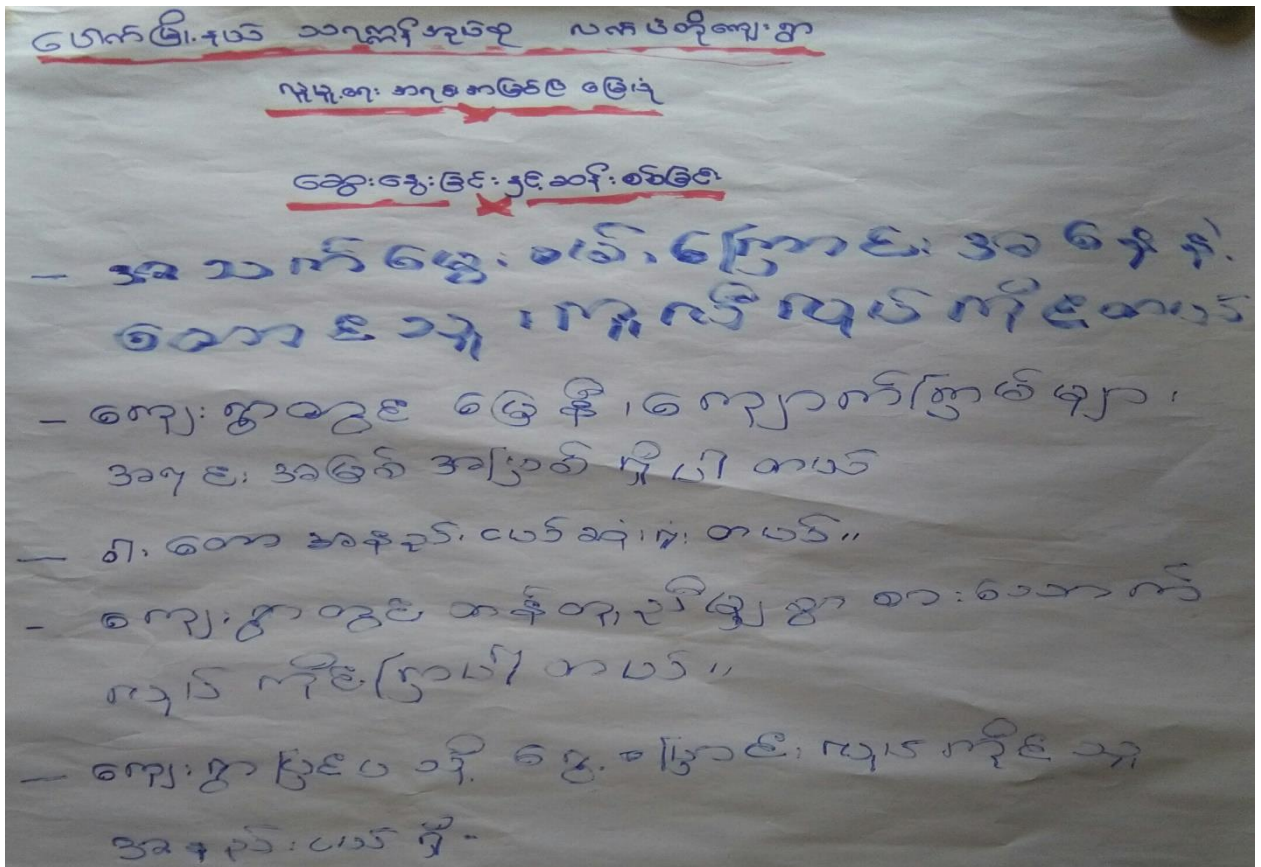 ပေါက်မြို့နယ် သရက္ကန်အုပ်စု လက်ပံတိုကျေးရွာ
လူမှုရေး အရင်းအမြစ်ပြ မြေပုံ
ဆွေးနွေးခြင်းနှင့်ဆန်းစစ်ခြင်း
- အသက်မွေးဝမ်းကြောင်းအနေနဲ့
တောင်သူ၊ ကူလီလုပ်ကိုင်တယ်
- ကျေးရွာတွင် မြေနီ၊ ကျောက်ကြမ်းများ
အရင်းအမြစ်အဖြစ် ရှိပါတယ်
- တော အနည်းငယ်ဆုံးရှုံးတယ်။
- ကျေးရွာတွင် တန်းတူညီမျှစွာ စားသောက်
လုပ်ကိုင်ကြပါတယ်။
- ကျေးရွာပြင်ပသို့ ရွှေ့ပြောင်းလုပ်ကိုင်သူ
အနည်းငယ်ရှိ-